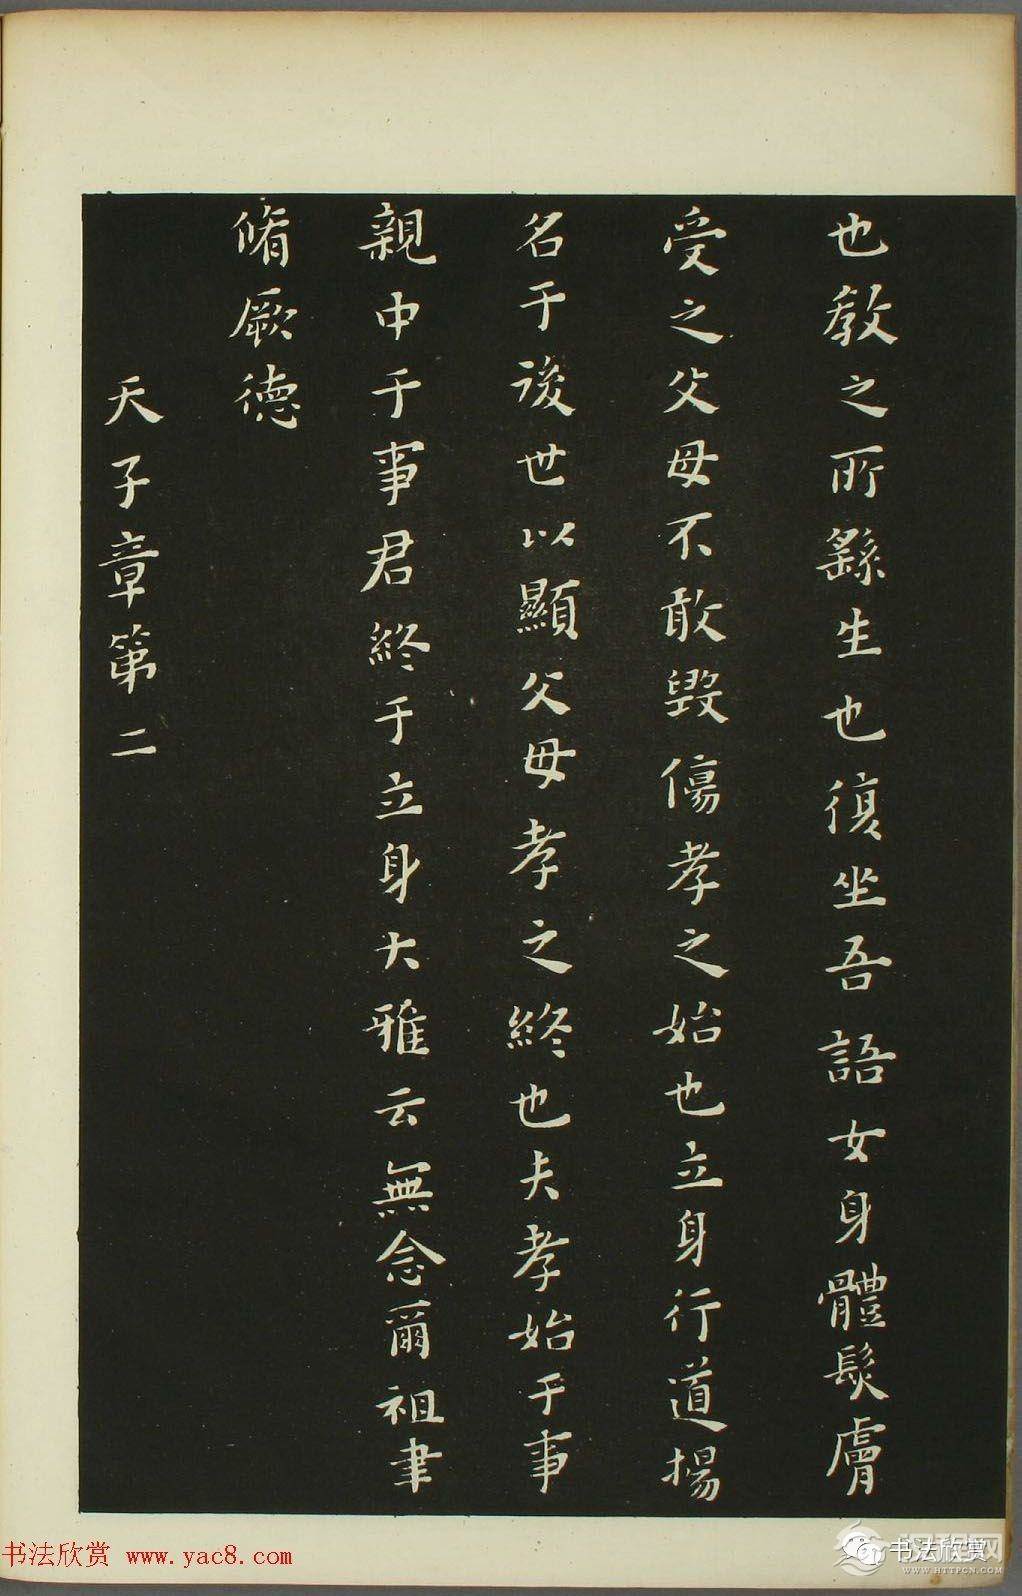 也教之所繇生也復坐吾語女身體髮膚
受之父母不敢毀傷孝之始也立身行道揚
名于後世以顯父母孝之終也夫孝始于事
親中于事君終于立身大雅云無念爾祖聿
脩厥德
天子章第二
书法欣赏 www.yac8.com
书法欣赏
汉程网
WWW.HTTPCN.COM